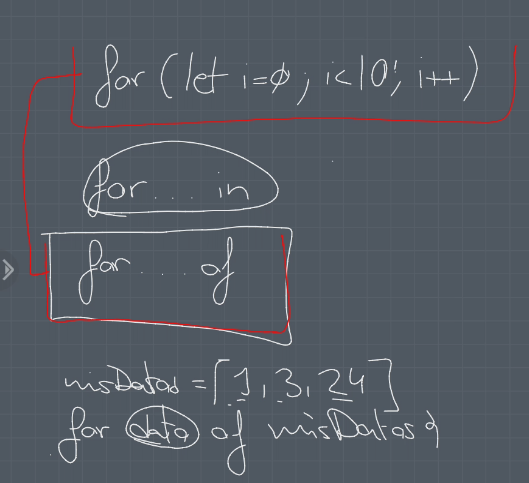 for (let i=0; i<10; i++)
for.... in
for.... of
misDatos = [1, 3, 24]
for data of misDatos {